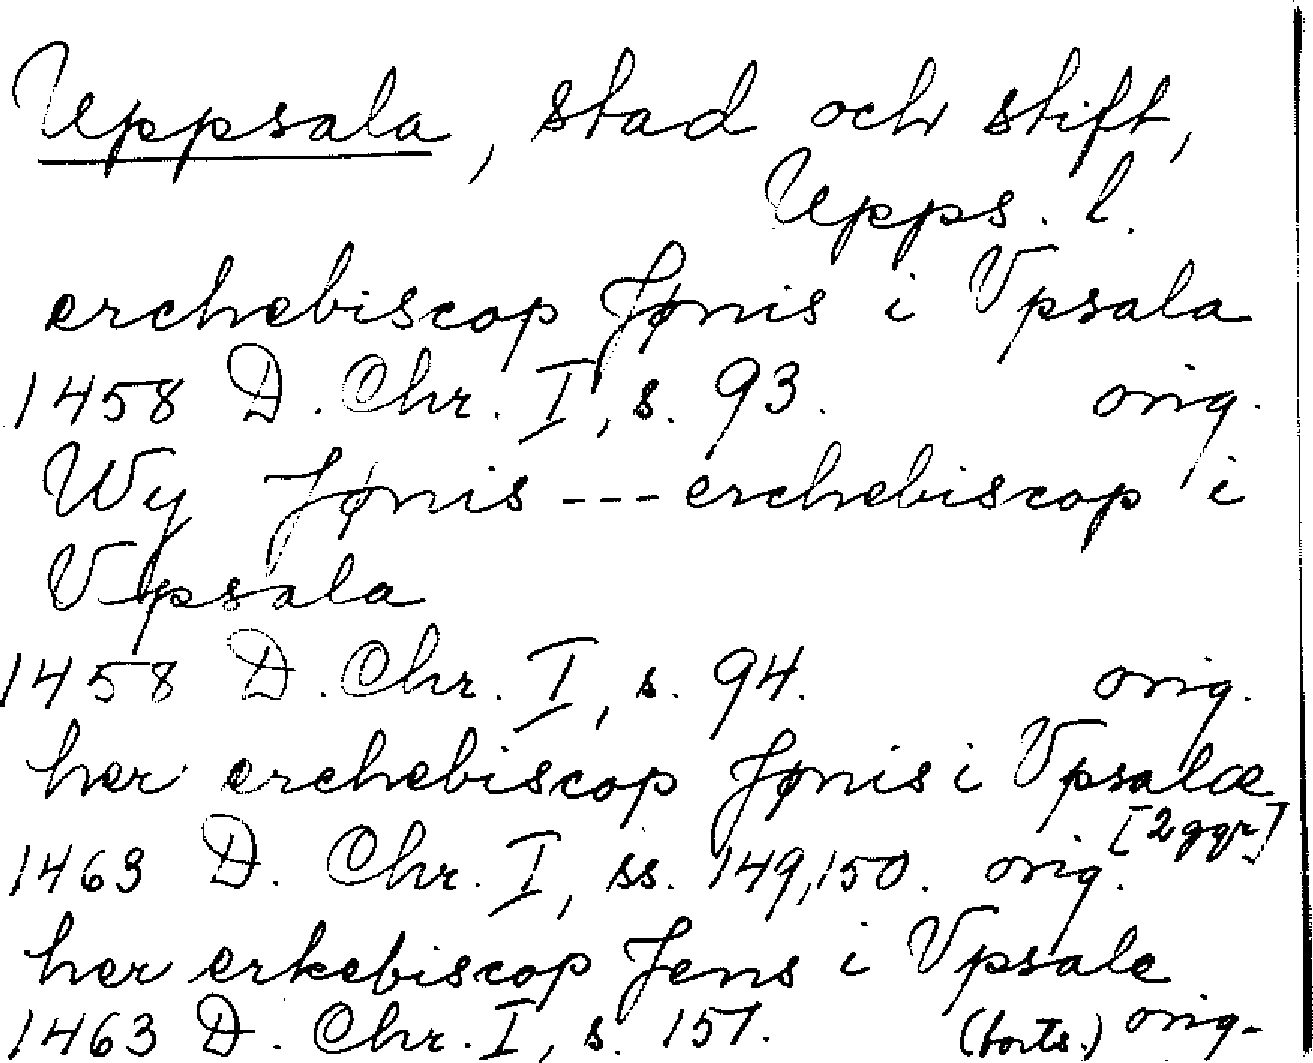 Uppsala, stad och stift,
Upps. l.
erchebiscop Jønis i Vpsala
1458 D. Chr. I, s. 93. orig.
Wy Jønis --- erchebiscop i
Vpsala
1458 D. Chr. I, s. 94. orig.
her erchebiscop Jønis i Vpsalæ
[2 ggr]
1463 D. Chr. I, ss. 149, 150. orig.
her erkebiscop Jens i Vpsale
1463 D. Chr. I, s. 151. (forts.) orig.